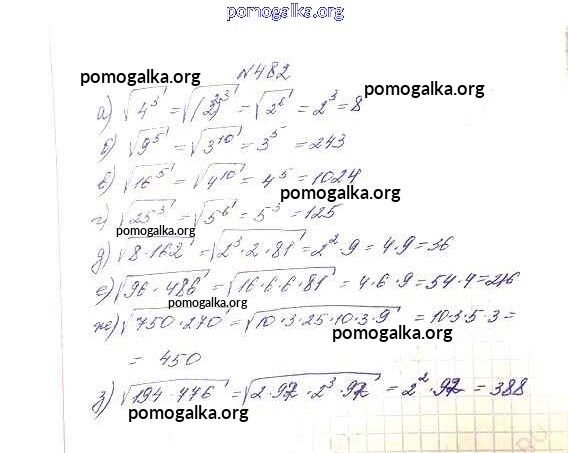 pomogalka.org
№482
pomogalka.org
pomogalka.org
а) √4³ = √(2²)³ = √2⁶ = 2³ = 8
б) √9⁵ = √3¹⁰ = 3⁵ = 243
в) √16⁵ = √4¹⁰ = 4⁵ = 1024
pomogalka.org
г) √25³ = √5⁶ = 5³ = 125
pomogalka.org
д) √8·162 = √2³·2·81 = 2²·9 = 4·9 = 36
е) √96·486 = √16·6·6·81 = 4·6·9 = 54·4 = 216
pomogalka.org
ж) √750·270 = √10·3·25·10·3·9 = 10·3·5·3 =
pomogalka.org
= 450
з) √194·776 = √2·97·2³·97 = 2²·97 = 388
pomogalka.org